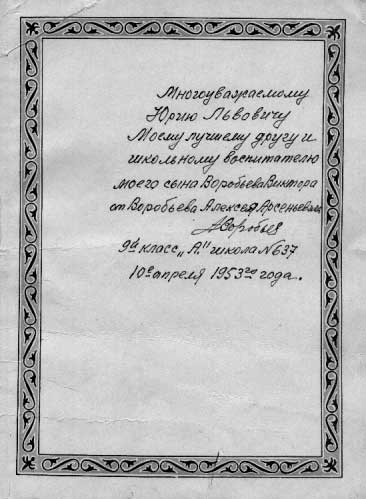 Многоуважаемому
Юрию Львовичу
Моему лучшему другу и
школьному воспитателю
моего сына Воробьева Виктора
от Воробьева Алексея Арсеньевича
АВоробьев
9й класс „А." школа № 637
10го апреля 1953го года.